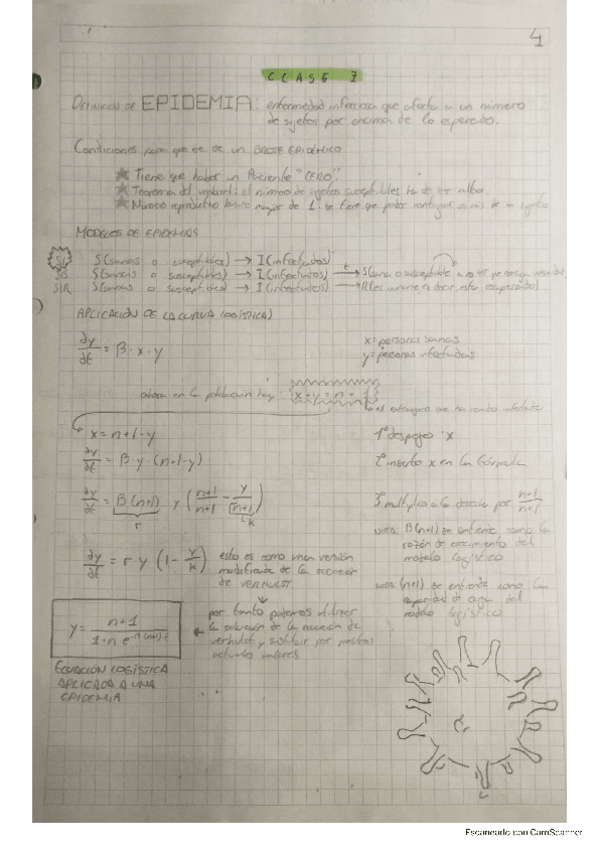 4
CLASE 7
DEFINICIÓN DE EPIDEMIA: enfermedad infecciosa que afecta a un número
de sujetos por encima de lo esperado.
Condiciones para que se de un BROTE EPIDÉMICO
★ Tiene que haber un Paciente "CERO".
★ Teorema del umbral: el número de sujetos susceptibles ha de ser alto
★ Número reproductivo básico mayor de 1: se tiene que poder contagiar a más de un sujeto
MODELOS DE EPIDEMIAS
SI S(sanos o susceptibles) → I(infectados)
SIS S(sanos o susceptibles) → I(infectados) → S(sano o susceptible
SIR S(sanos o susceptibles) → I(infectados) → R(es inmune, es decir, esta recuperado)
APLICACIÓN DE LA CURVA LOGÍSTICA
dy/dt = β · x · y
x = personas sanas
y = personas infectadas
ahora en la población hay: x + y = n + 1
es el extranjero que ha venido infectado
x = n+1-y
1º despejo: x
dy/dt = β y · (n+1-y)
2º inserto x en la fórmula
dy/dt = β(n+1) y (n+1/n+1 - y/n+1)
r
k
3º multiplico la ecuación por n+1/n+1
NOTA: β(n+1) se entiende como la
razón de crecimiento del
modelo logístico
dy/dt = r y (1 - y/k)
esto es como una versión
modificada de la ecuación
de VERHULST
NOTA: (n+1) se entiende como la
capacidad de carga del
modelo logístico
y = n+1 / 1+n·e^-β(n+1)·t
por tanto podemos utilizar
la solución de la ecuación de
verhulst y sustituir por nuestros
actuales valores
ECUACIÓN LOGÍSTICA
APLICADA A UNA
EPIDEMIA
Escaneado con CamScanner